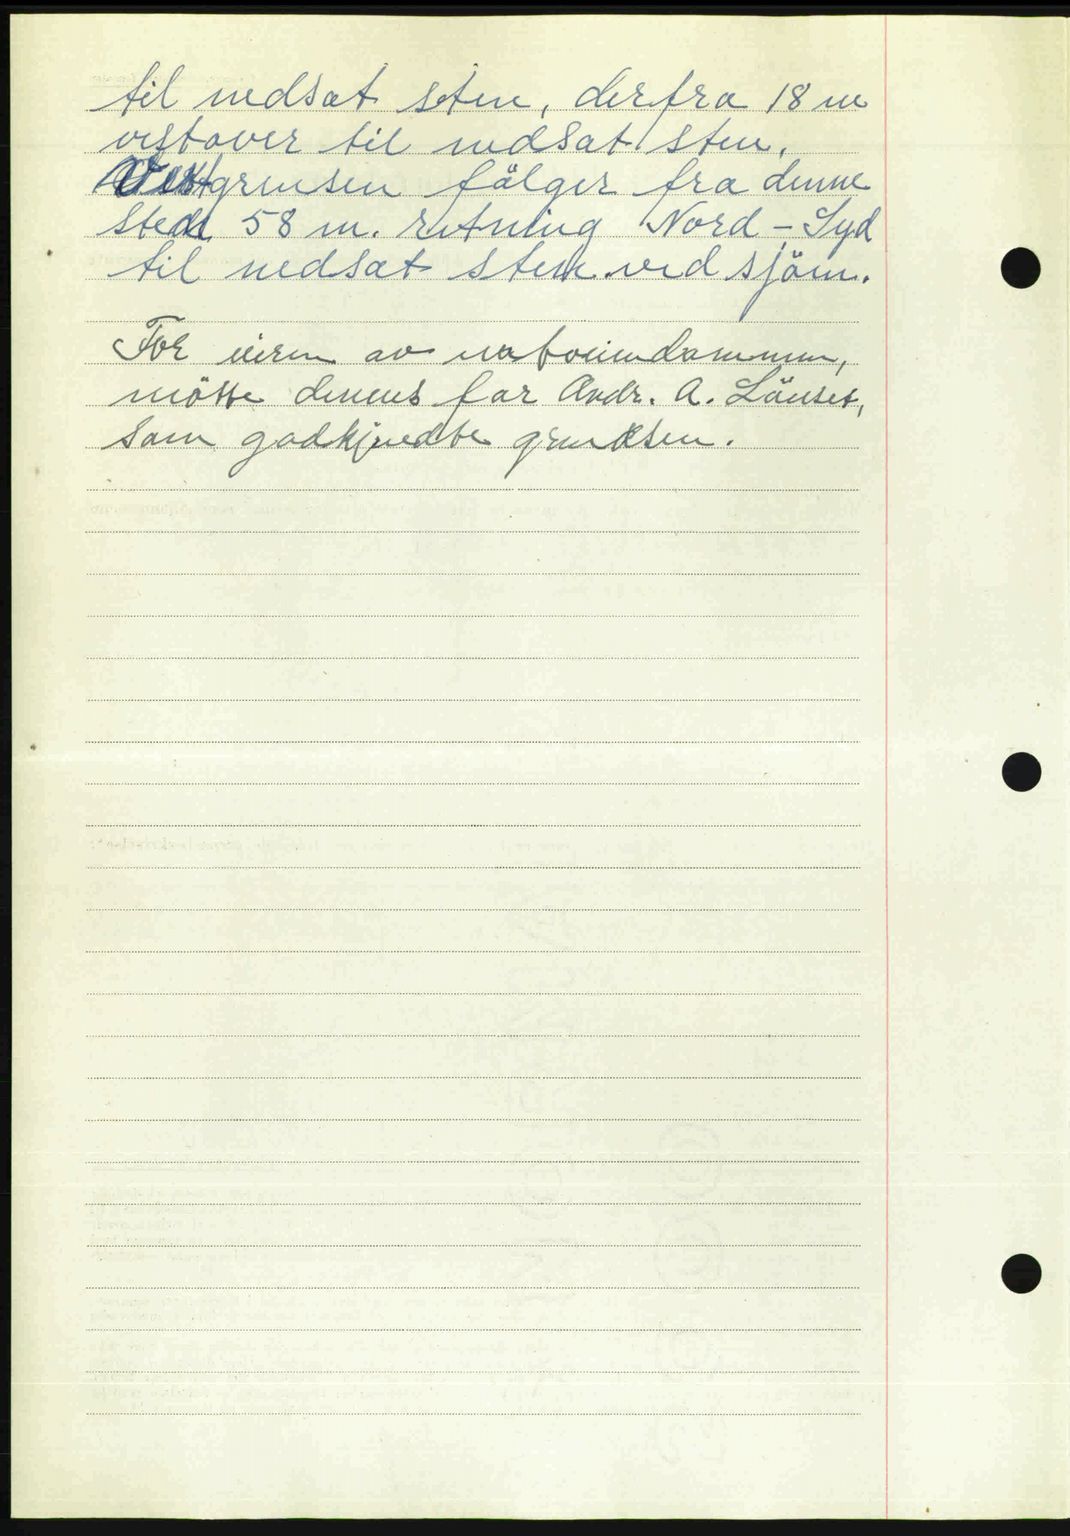 til nedsat sten, derfra 18 m
vestover til nedsat sten,
Vestgrensen fölger fra denne
sten 58 m. retning Nord - Syd
til nedsat sten ved sjöen.
For eieren av naboeiendommen,
mötte dennes far Andr. A. Lånset,
som godkjendte grensen.